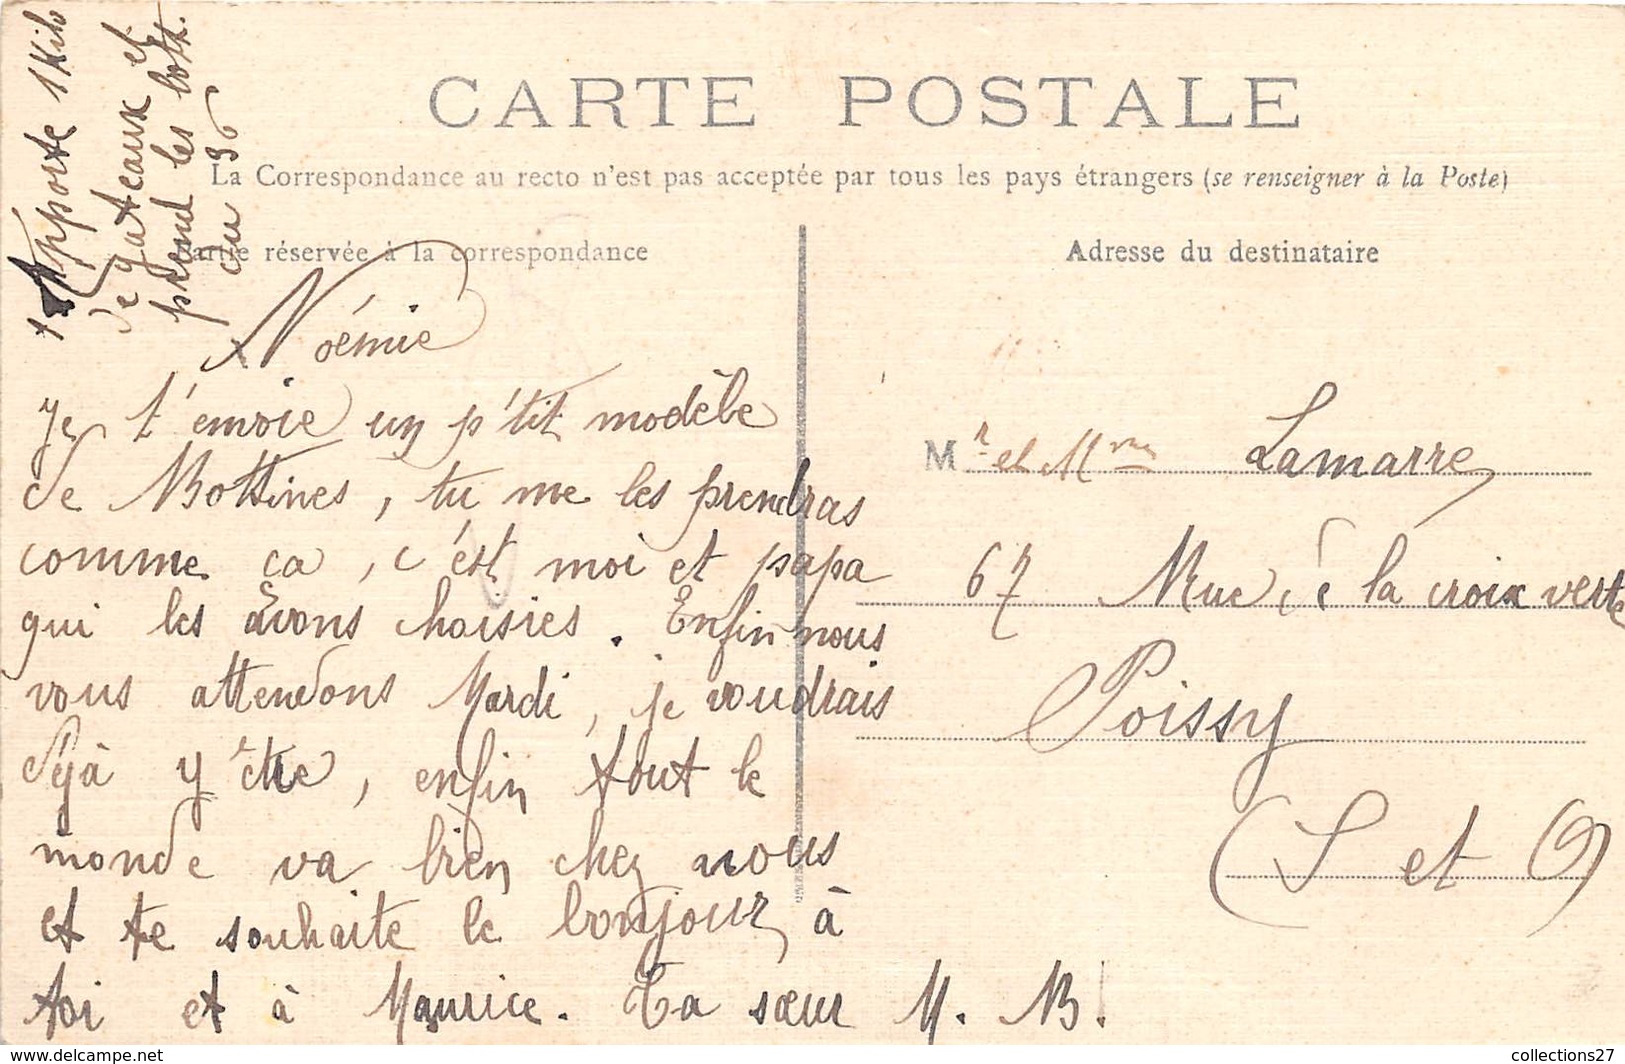 CARTE POSTALE
La Correspondance au recto n'est pas acceptée par tous les pays étrangers (se renseigner à la Poste)
Partie réservée à la correspondance
Adresse du destinataire
Apporte 1 Kilo
de gateaux et
prend les bott.
du 36
Noémie
Je t'envoie un p'tit modèle
de Bottines, tu me les prendras
comme ça, c'est moi et papa
qui les avons choisies. Enfin nous
vous attendons Mardi, je voudrais
déjà y être, enfin tout le
monde va bien chez nous
et te souhaite le bonjour, à
toi et à Maurice. Ta sœur M. B.
Mr et Mme Lamarre
67 Rue de la croix verte
Poissy
(S et O)
collections27